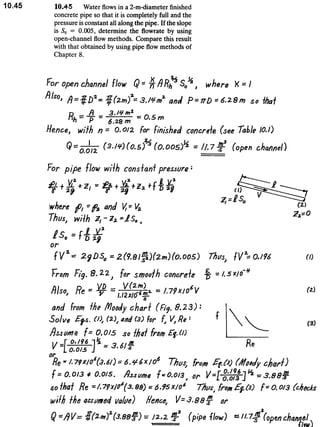 10.45
10.45 Water flows in a 2-m-diameter finished
concrete pipe so that it is completely full and the
pressure is constant all along the pipe. If the slope
is S₀ = 0.005, determine the flowrate by using
open-channel flow methods. Compare this result
with that obtained by using pipe flow methods of
Chapter 8.
For open channel flow Q = K/n A R_h^(2/3) S₀^(1/2), where K = 1
Also, A = π/4 D² = π/4 (2m)² = 3.14 m² and P = πD = 6.28 m so that
R_h = A/P = 3.14 m²/6.28 m = 0.5 m
Hence, with n = 0.012 for finished concrete (see Table 10.1)
Q = 1/0.012 (3.14)(0.5)^(2/3) (0.005)^(1/2) = 11.7 m³/s (open channel)
For pipe flow with constant pressure:
p₁/γ + V₁²/2g + Z₁ = p₂/γ + V₂²/2g + Z₂ + f ℓ/D V²/2g
(1) Z₁ = ℓS₀ V ℓ (2) Z₂=0
where p₁ = p₂ and V₁ = V₂
Thus, with Z₁ - Z₂ = ℓS₀,
ℓS₀ = f ℓ/D V²/2g
or
fV² = 2gDS₀ = 2(9.81 m/s²)(2m)(0.005) Thus, fV² = 0.196 (1)
From Fig. 8.22, for smooth concrete ε/D = 1.5×10⁻⁴
Also, Re = VD/ν = V(2m)/1.12×10⁻⁶ m²/s = 1.79×10⁶ V (2)
and from the Moody chart (Fig. 8.23): (3)
f Re
Solve Eqs. (1), (2), and (3) for f, V, Re:
Assume f = 0.015 so that from Eq. (1)
V = [0.196/0.015]^(1/2) = 3.61 m/s
or
Re = 1.79×10⁶ (3.61) = 6.46×10⁶ Thus, from Eq. (3) (Moody chart)
f = 0.013 ≠ 0.015. Assume f = 0.013, or V = [0.196/0.013]^(1/2) = 3.88 m/s
so that Re = 1.79×10⁶ (3.88) = 6.95×10⁶ Thus, from Eq. (3) f = 0.013 (checks
with the assumed value) Hence, V = 3.88 m/s or
Q = AV = π/4 (2m)² (3.88 m/s) = 12.2 m³/s (pipe flow) ≈ 11.7 m³/s (open channel
flow)